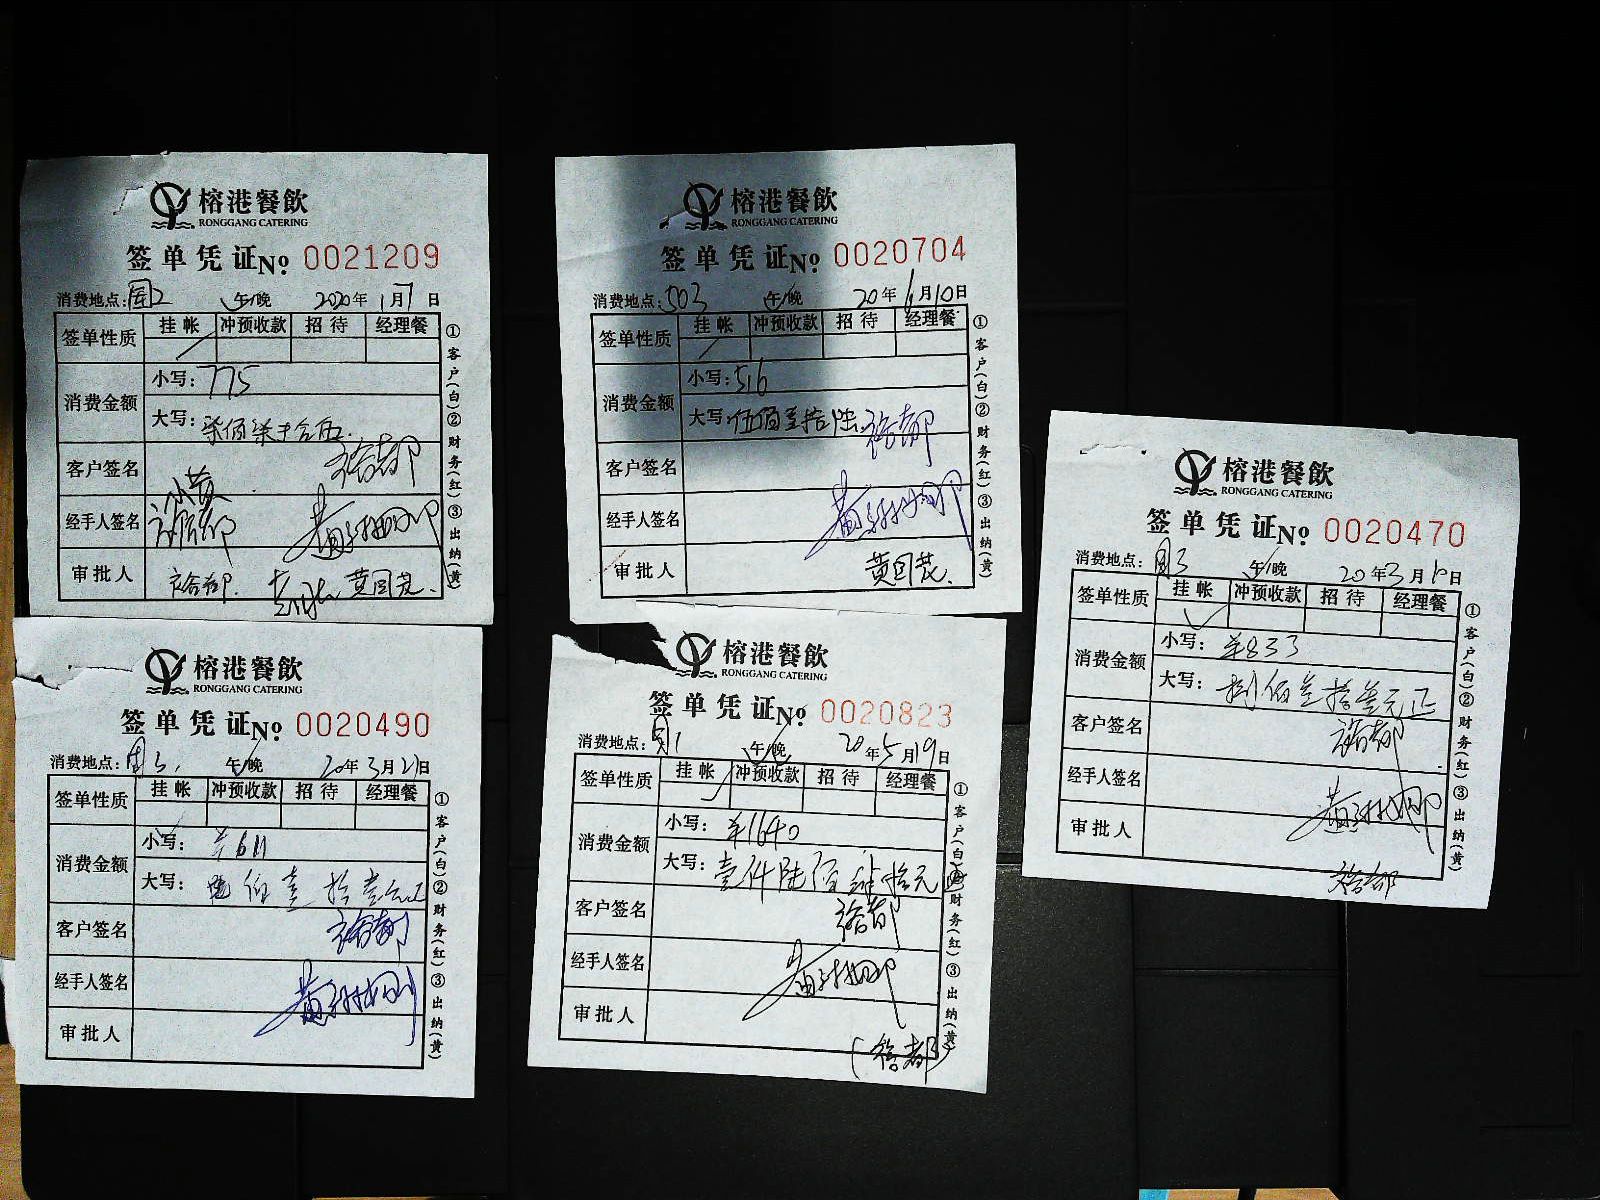 榕港餐飲
RONGGANG CATERING
签单凭证No 0021209
消费地点: 午/晚 2020年1月7日
签单性质 挂帐 冲预收款 招待 经理餐
消费金额
小写: 775
大写: 柒佰柒十
客户签名
经手人签名
审批人 黄国茂
①客户(白)②财务(红)③出纳(黄)
榕港餐飲
RONGGANG CATERING
签单凭证No 0020704
消费地点: 503 午/晚 20年 月10日
签单性质 挂帐 冲预收款 招待 经理餐
消费金额
小写: 516
大写: 伍佰壹拾陆
客户签名
经手人签名
审批人 黄国茂
①客户(白)②财务(红)③出纳(黄)
榕港餐飲
RONGGANG CATERING
签单凭证No 0020470
消费地点: 午/晚 20年3月 日
签单性质 挂帐 冲预收款 招待 经理餐
消费金额
小写: ¥833
大写: 捌佰叁拾叁元正
客户签名
经手人签名
审批人
①客户(白)②财务(红)③出纳(黄)
榕港餐飲
RONGGANG CATERING
签单凭证No 0020490
消费地点: 午/晚 20年3月21日
签单性质 挂帐 冲预收款 招待 经理餐
消费金额
小写: ¥611
大写: 佰壹拾壹元正
客户签名
经手人签名
审批人
①客户(白)②财务(红)③出纳(黄)
榕港餐飲
RONGGANG CATERING
签单凭证No 0020823
消费地点: 午/晚 20年5月19日
签单性质 挂帐 冲预收款 招待 经理餐
消费金额
小写: ¥1640
大写: 壹仟陆佰肆拾元
客户签名
经手人签名
审批人
①客户(白)②财务(红)③出纳(黄)